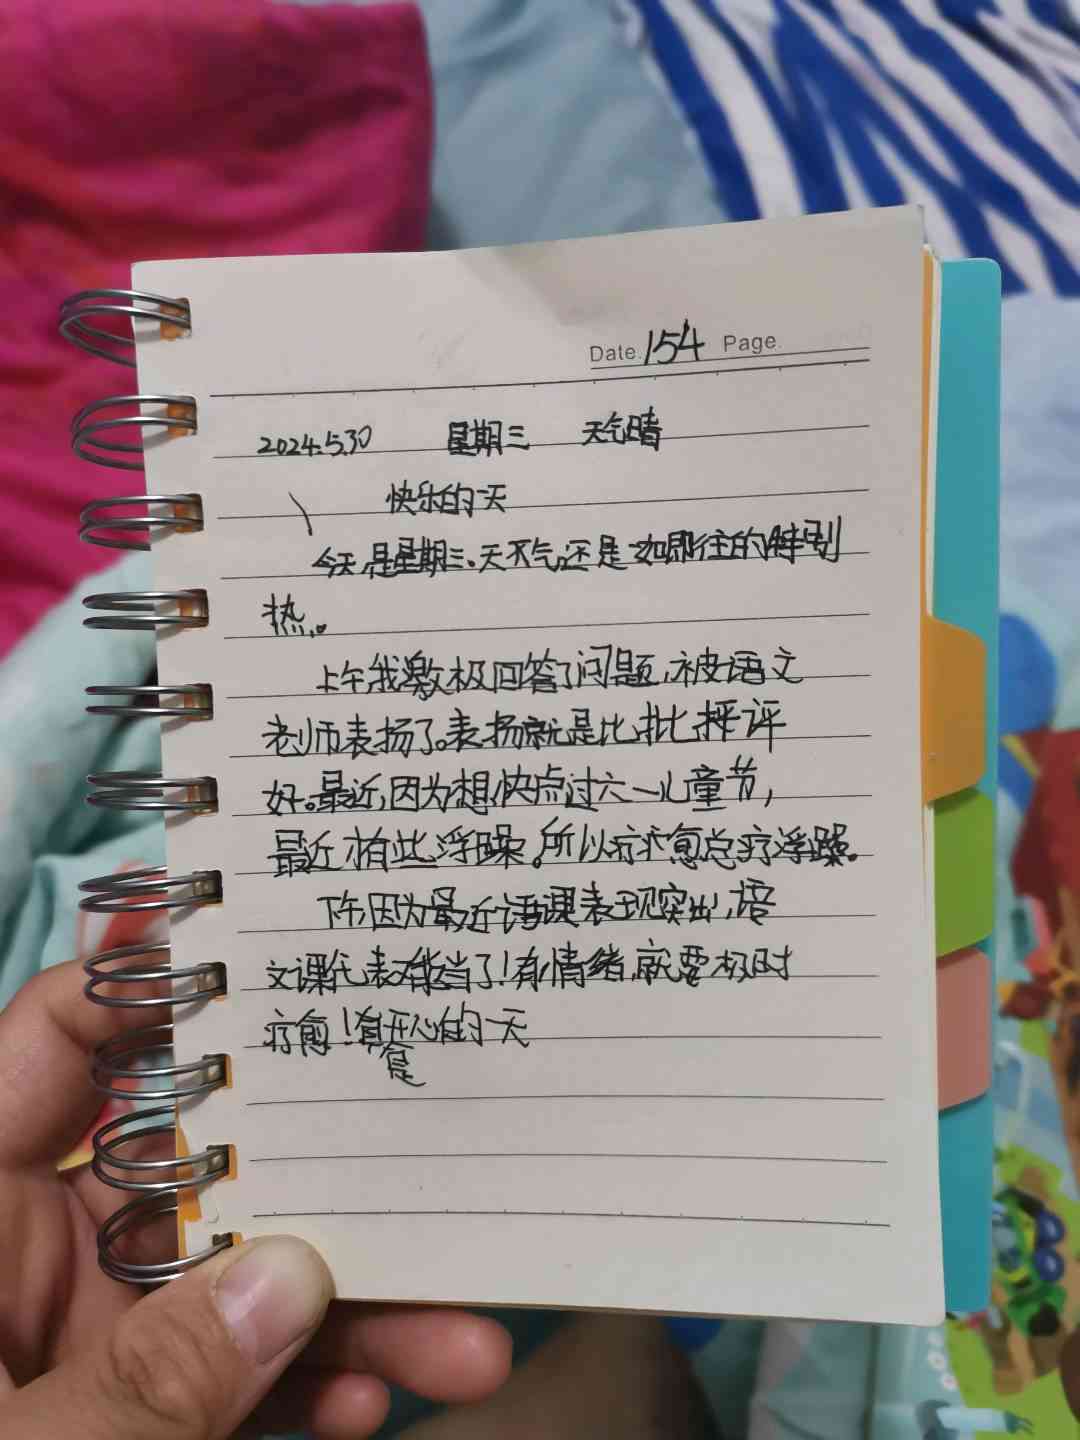 Date. 154 Page.
2024.5.30 星期三 天气晴
快乐的一天
今天是星期三、天天气还是一如即往的特别
热。
上午我激极回答了问题，被语文
老师表扬了。表扬就是比批评评
好。最近，因为想快点过六一儿童节，
最近有些浮躁。所以疗愈总疗浮躁。
下午因为最近语课表现突出，语
文课代表才能当了！有情绪，就要极时
疗愈！真开心的一天
是